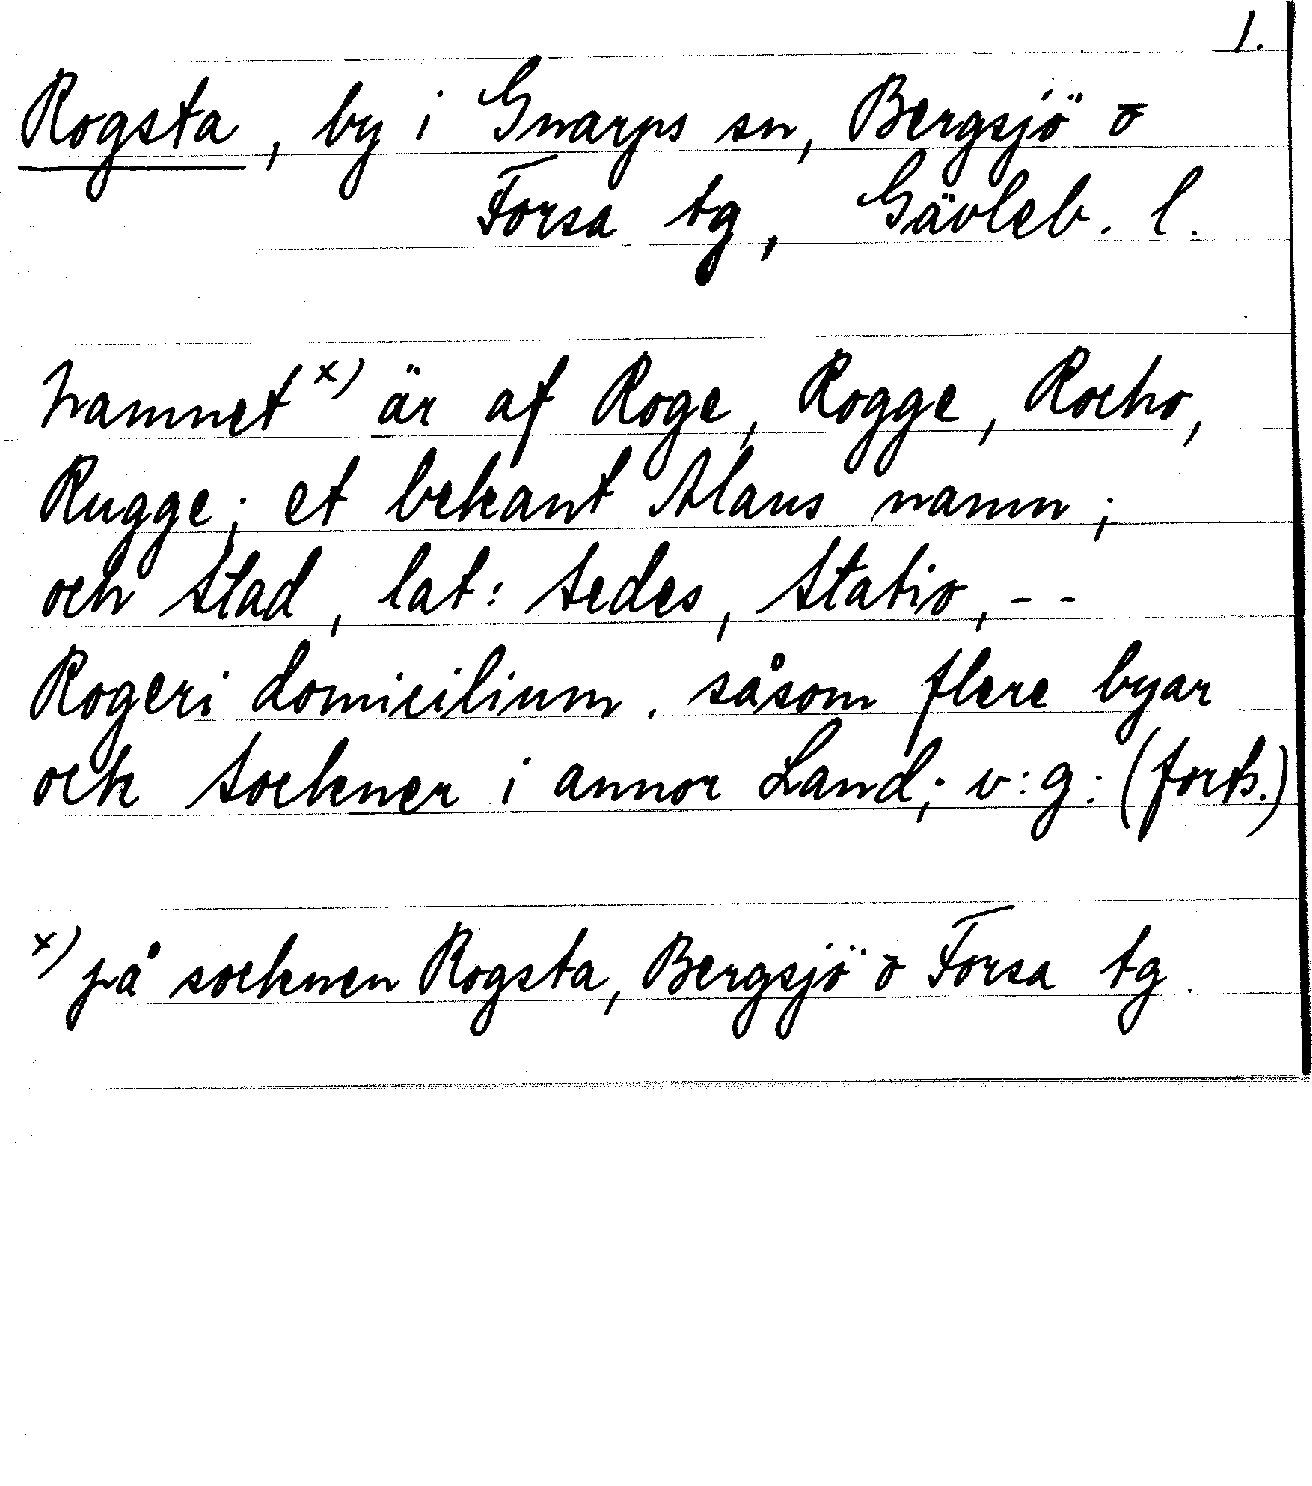 1.
Rogsta, by i Gnarps sn, Bergsjö o
Forsa tg, Gävleb. l.
Namnet x) är af Roge, Rogge, Rocho,
Rugge; et bekant Mans namn;
och Stad, lat: Sedes, Statio, - -
Rogeri domicilium. såsom flere byar
och Sockner i annor Land; v:g: (forts.)
x) på socknen Rogsta, Bergsjö o Forsa tg.